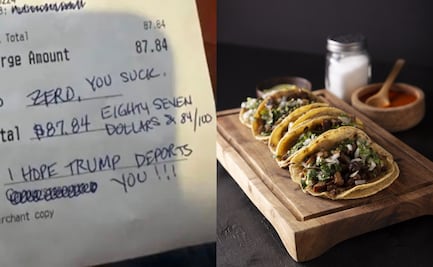 Total 87.84
arge Amount 87.84
ZERO, YOU SUCK.
tal $87.84 EIGHTY SEVEN
DOLLARS & 84/100
I HOPE TRUMP DEPORTS
YOU!!!
erchant copy